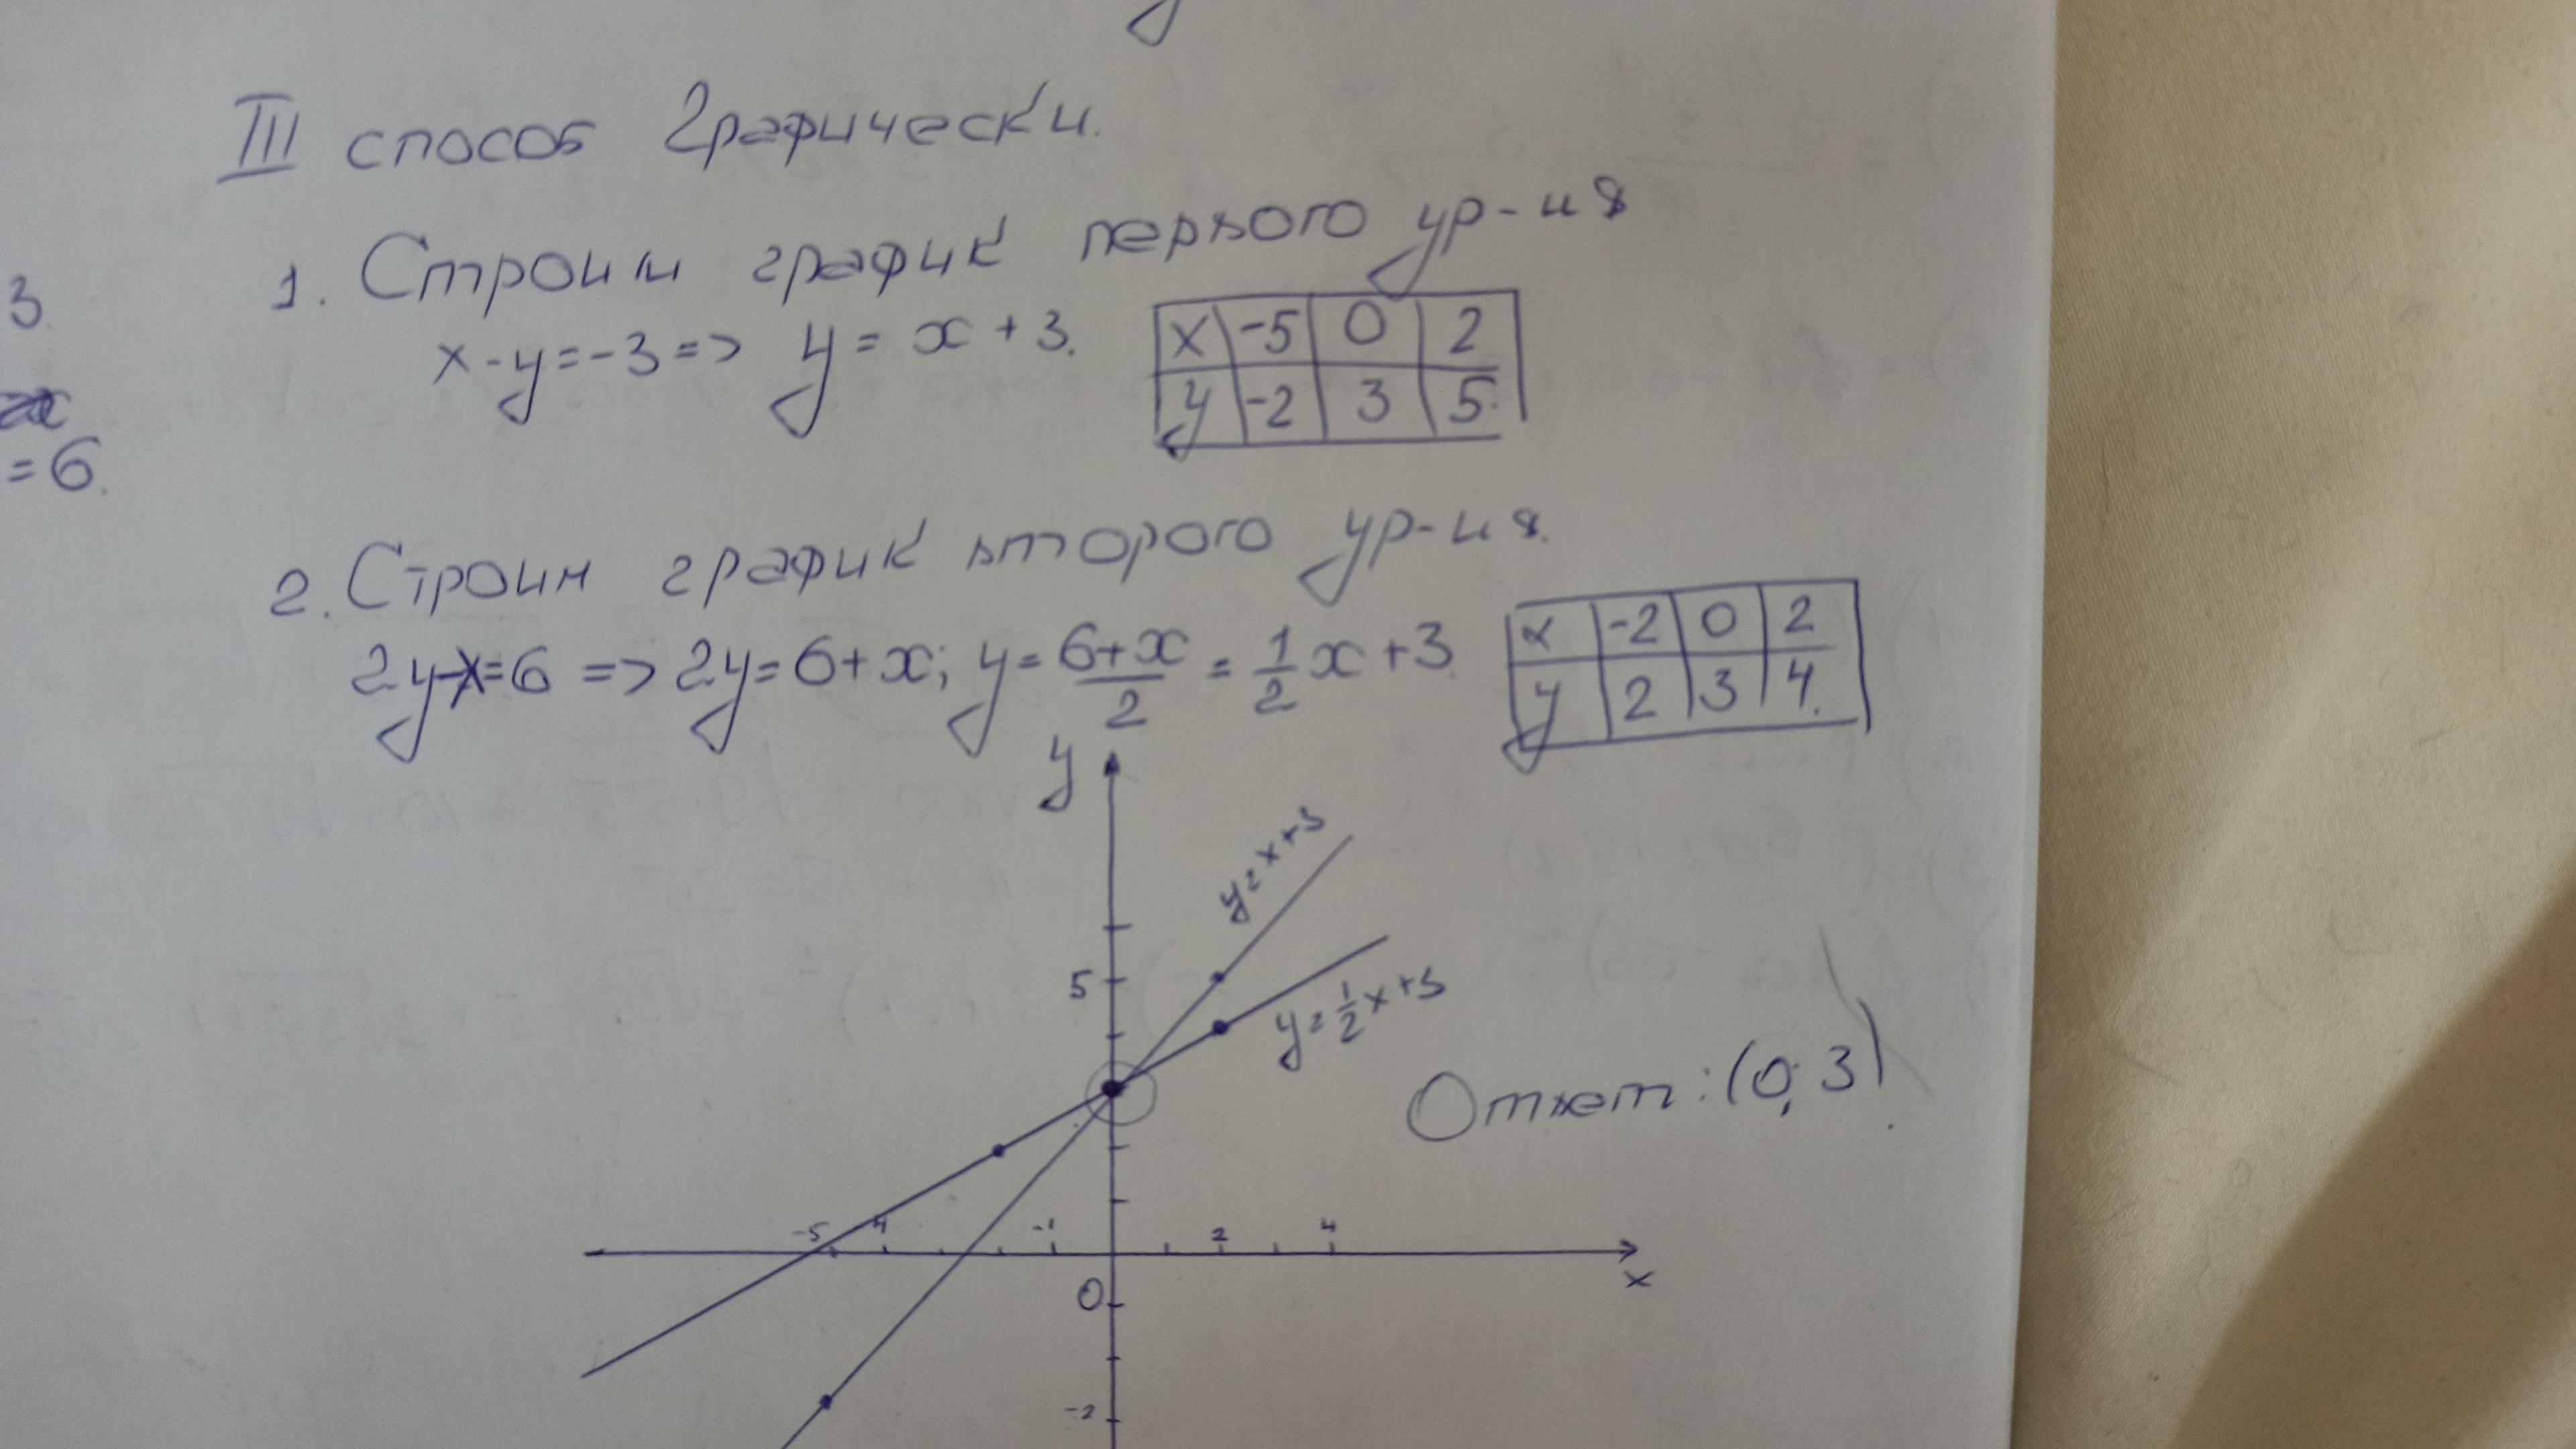 III способ Графически.
3.
1. Строим график первого ур-ия
x-y=-3 => y= x+3.
x -5 0 2
y -2 3 5.
=6.
2. Строим график второго ур-ия.
2y-x=6 => 2y=6+x; y= 6+x/2 = 1/2 x+3.
x -2 0 2
y 2 3 4.
y
y=x+3
5
y=1/2 x+3
Ответ: (0; 3).
-5 4 -1 2 4
x
0
-2